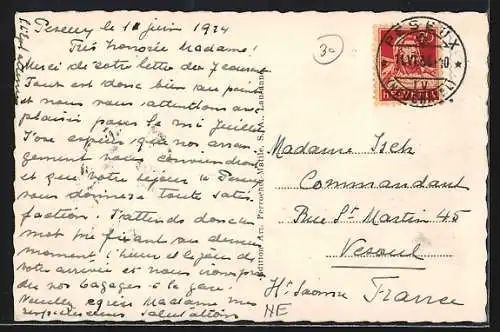 Peseux le 11 juin 1934
Très honorée Madame!
Merci de votre lettre du 7 courant
Tout est donc bien au point
et nous vous attendons avec
plaisir pour la mi Juillet
J'ose espérer que nos arran-
gement vous conviendront
et que votre séjour à Peseux
vous donnera toute satis-
faction. J'attends donc un
mot me fixant au dernier
moment l'heure et le jour de
votre arrivée et nous irons
de nos bagages à la gare!
Veuillez agréer Madame mes
respectueuses salutations
30
PESEUX
(NEUCHATEL)
HELVETIA
Edition Art. Perrochet-Matile, S. A., Lausanne
Madame Isch
Commandant
Rue St Martin 45
Vesoul
Hte Saonne France
NE